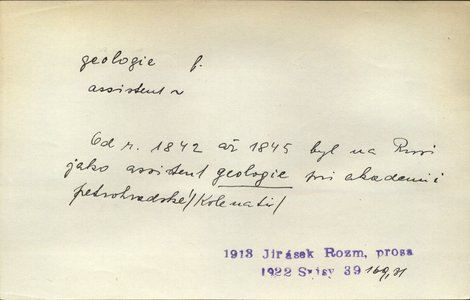 geologie f.
assistent ~
Od r. 1842 až 1845 byl na Rusi
jako assistent geologie při akademii
petrohradské /Kolenatý/
1913 Jirásek Rozm, prosa
1922 Spisy 39 169,31